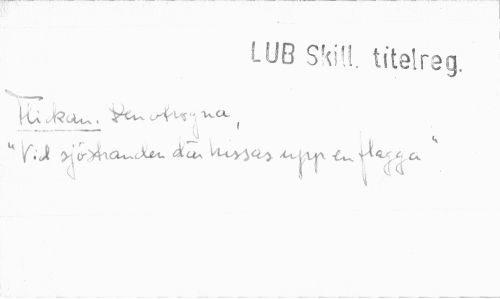 LUB Skill. titelreg.
Flickan. Den otrogna,
"Vid sjöstranden där hissas upp en flagga"